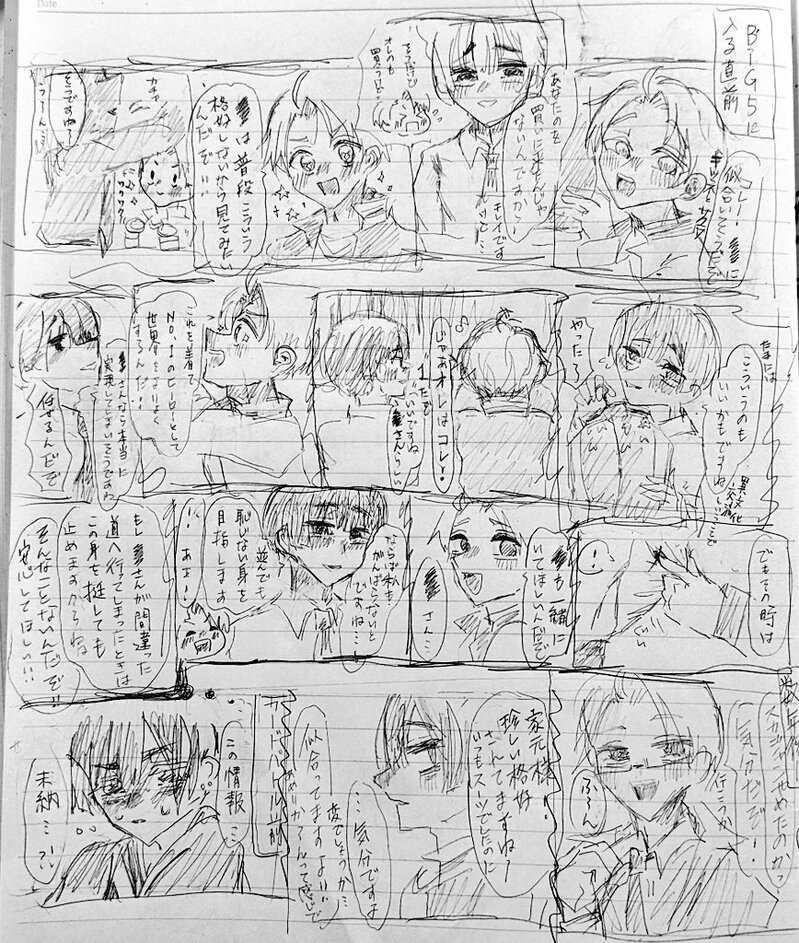 Date
BIG5に
入る直前
コレ!
似合いそうだぞ
あなたのを
買いに来たんじゃ
ないんですか!
キレイです
けど…
オレのも
買うけど!
は普段こういう
格好しないから見てみたい
んだぞ!!
カチャ
そうですね?
うーん…
ワクワク
たまには
こういうのも
いいかもですね
やったー
異文化
交流
じゃあオレはコレ!
♪
いいですね
さんらしい
これを着て
No.1のヒーローとして
世界をより良く
するんだ!!
さんなら本当に
実現してしまいそうですね
任せるんだぞ
でもその時は
も一緒に
いてほしいんだぞ
さん…
ならば私も
がんばらないと
ですね…
並んでも
恥じない身を
目指します
ああ!
もしさんが間違った
道へ行ってしまったときは
この身を挺しても
止めますからね
そんなことないんだぞ!!
安心してほしい!!
数年後
スカジャンやめたのか?
行こうか
気分だぞ!
ふーん
家元様!
珍しい格好
さんてますね?
いつもスーツでしたのに
…気分ですよ
変でしょうか…
似合ってますよ!!
カードバトル前
この情報…
未納…